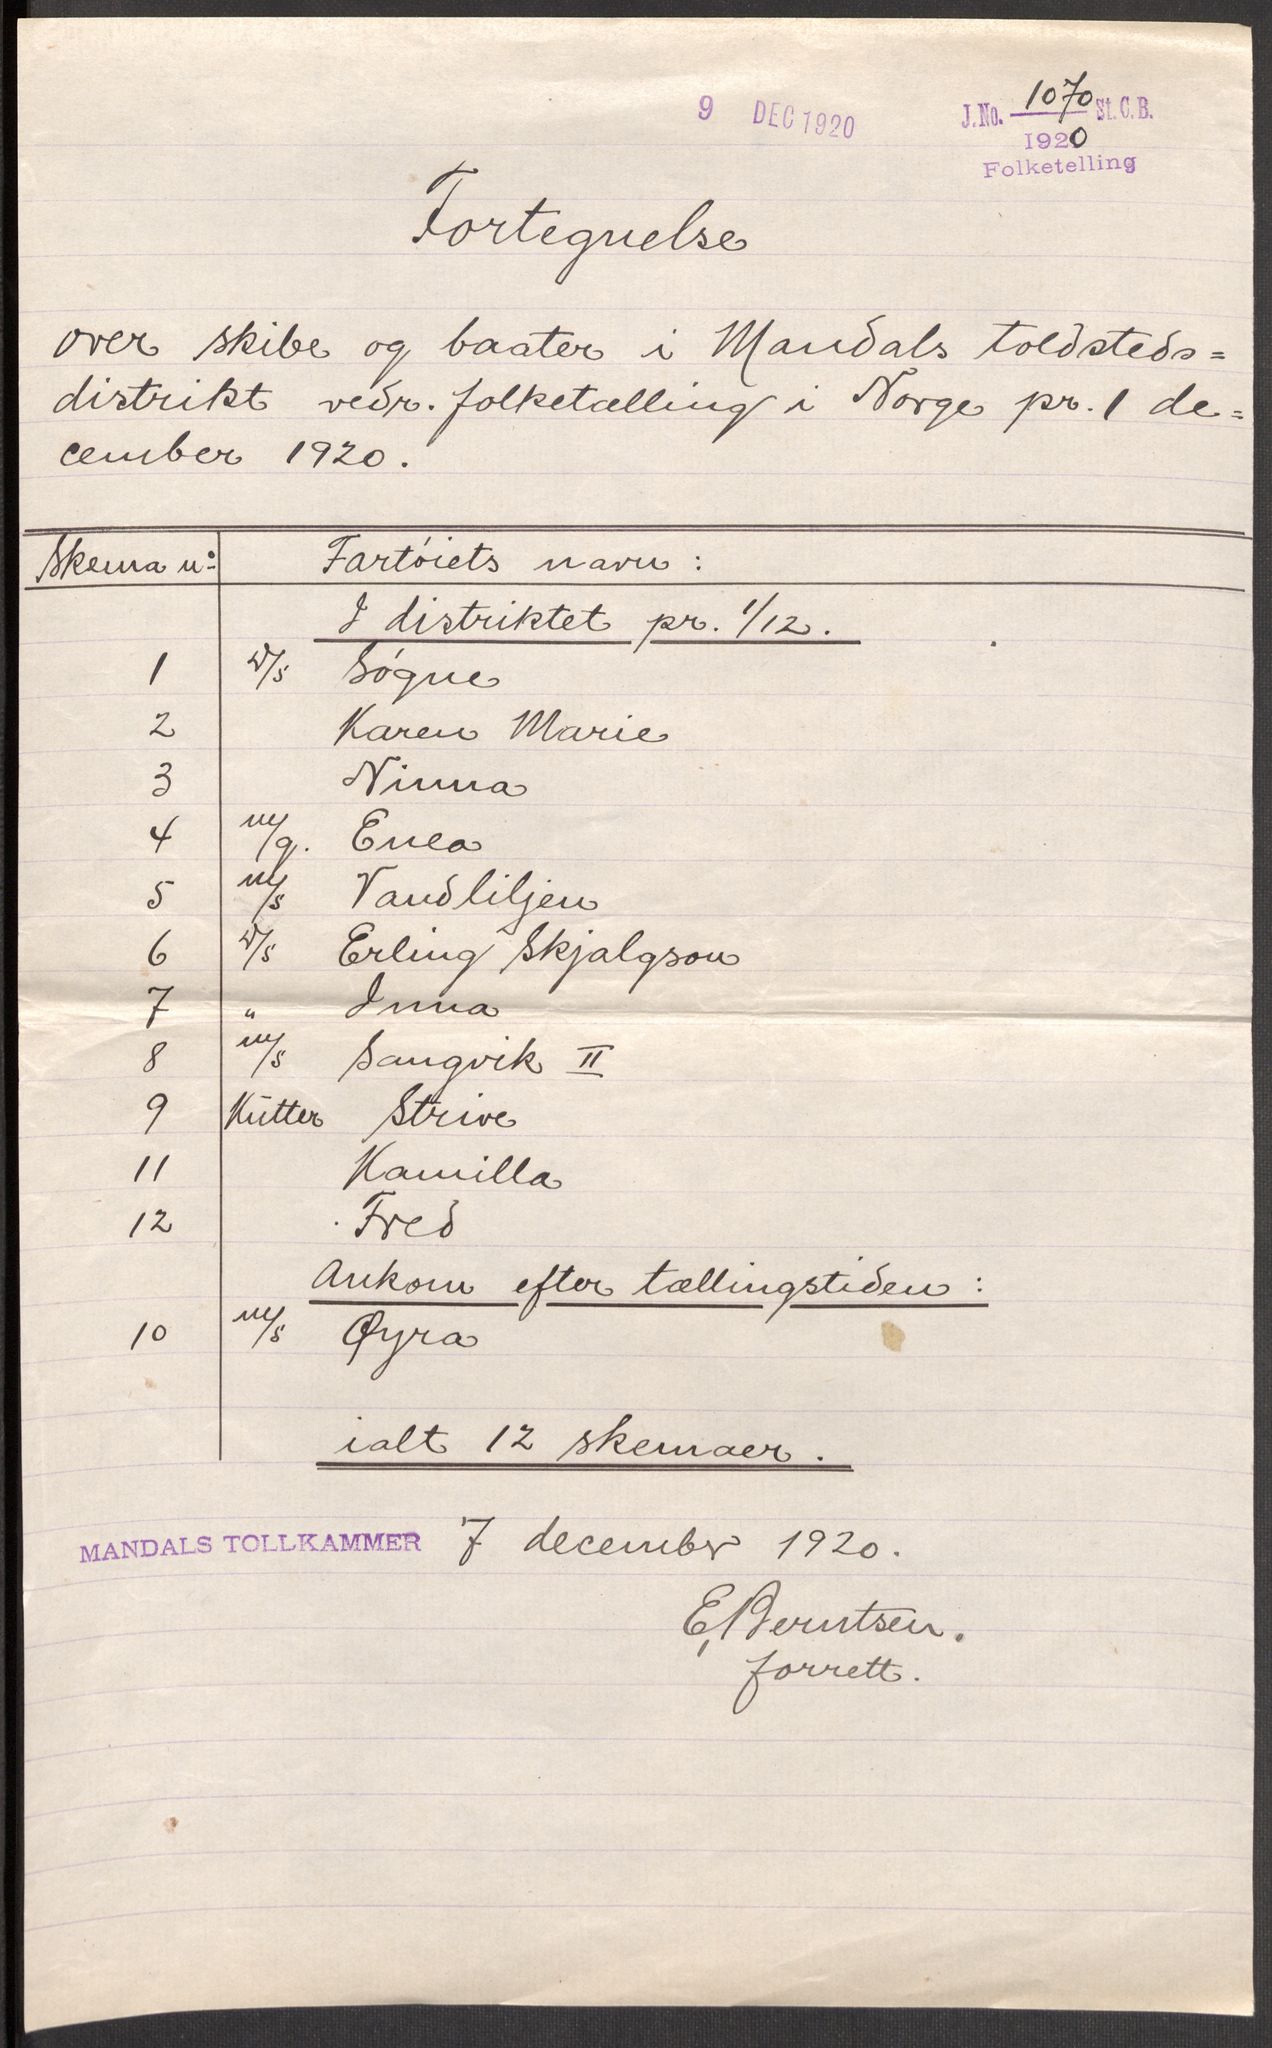 9 DEC 1920
J.No. 1070 St.C.B.
1920
Folketelling
Fortegnelse
over skibe og baater i Mandals toldsteds=
distrikt vedr. folketælling i Norge pr. 1 de=
cember 1920.
Skema no: Fartøiets navn:
I distriktet pr. 1/12.
1 D/s Søgne
2 Karen Marie
3 Ninna
4 m/g. Enea
5 m/s Vandliljen
6 D/s Erling Skjalgson
7 " Inna
8 m/s Sangvik II
9 Kutter Strive
11 Kamilla
12 Fred
Ankom efter tællingstiden:
10 m/s Øyra
ialt 12 skemaer.
MANDALS TOLLKAMMER 7 december 1920.
E. Berntsen.
forrett.